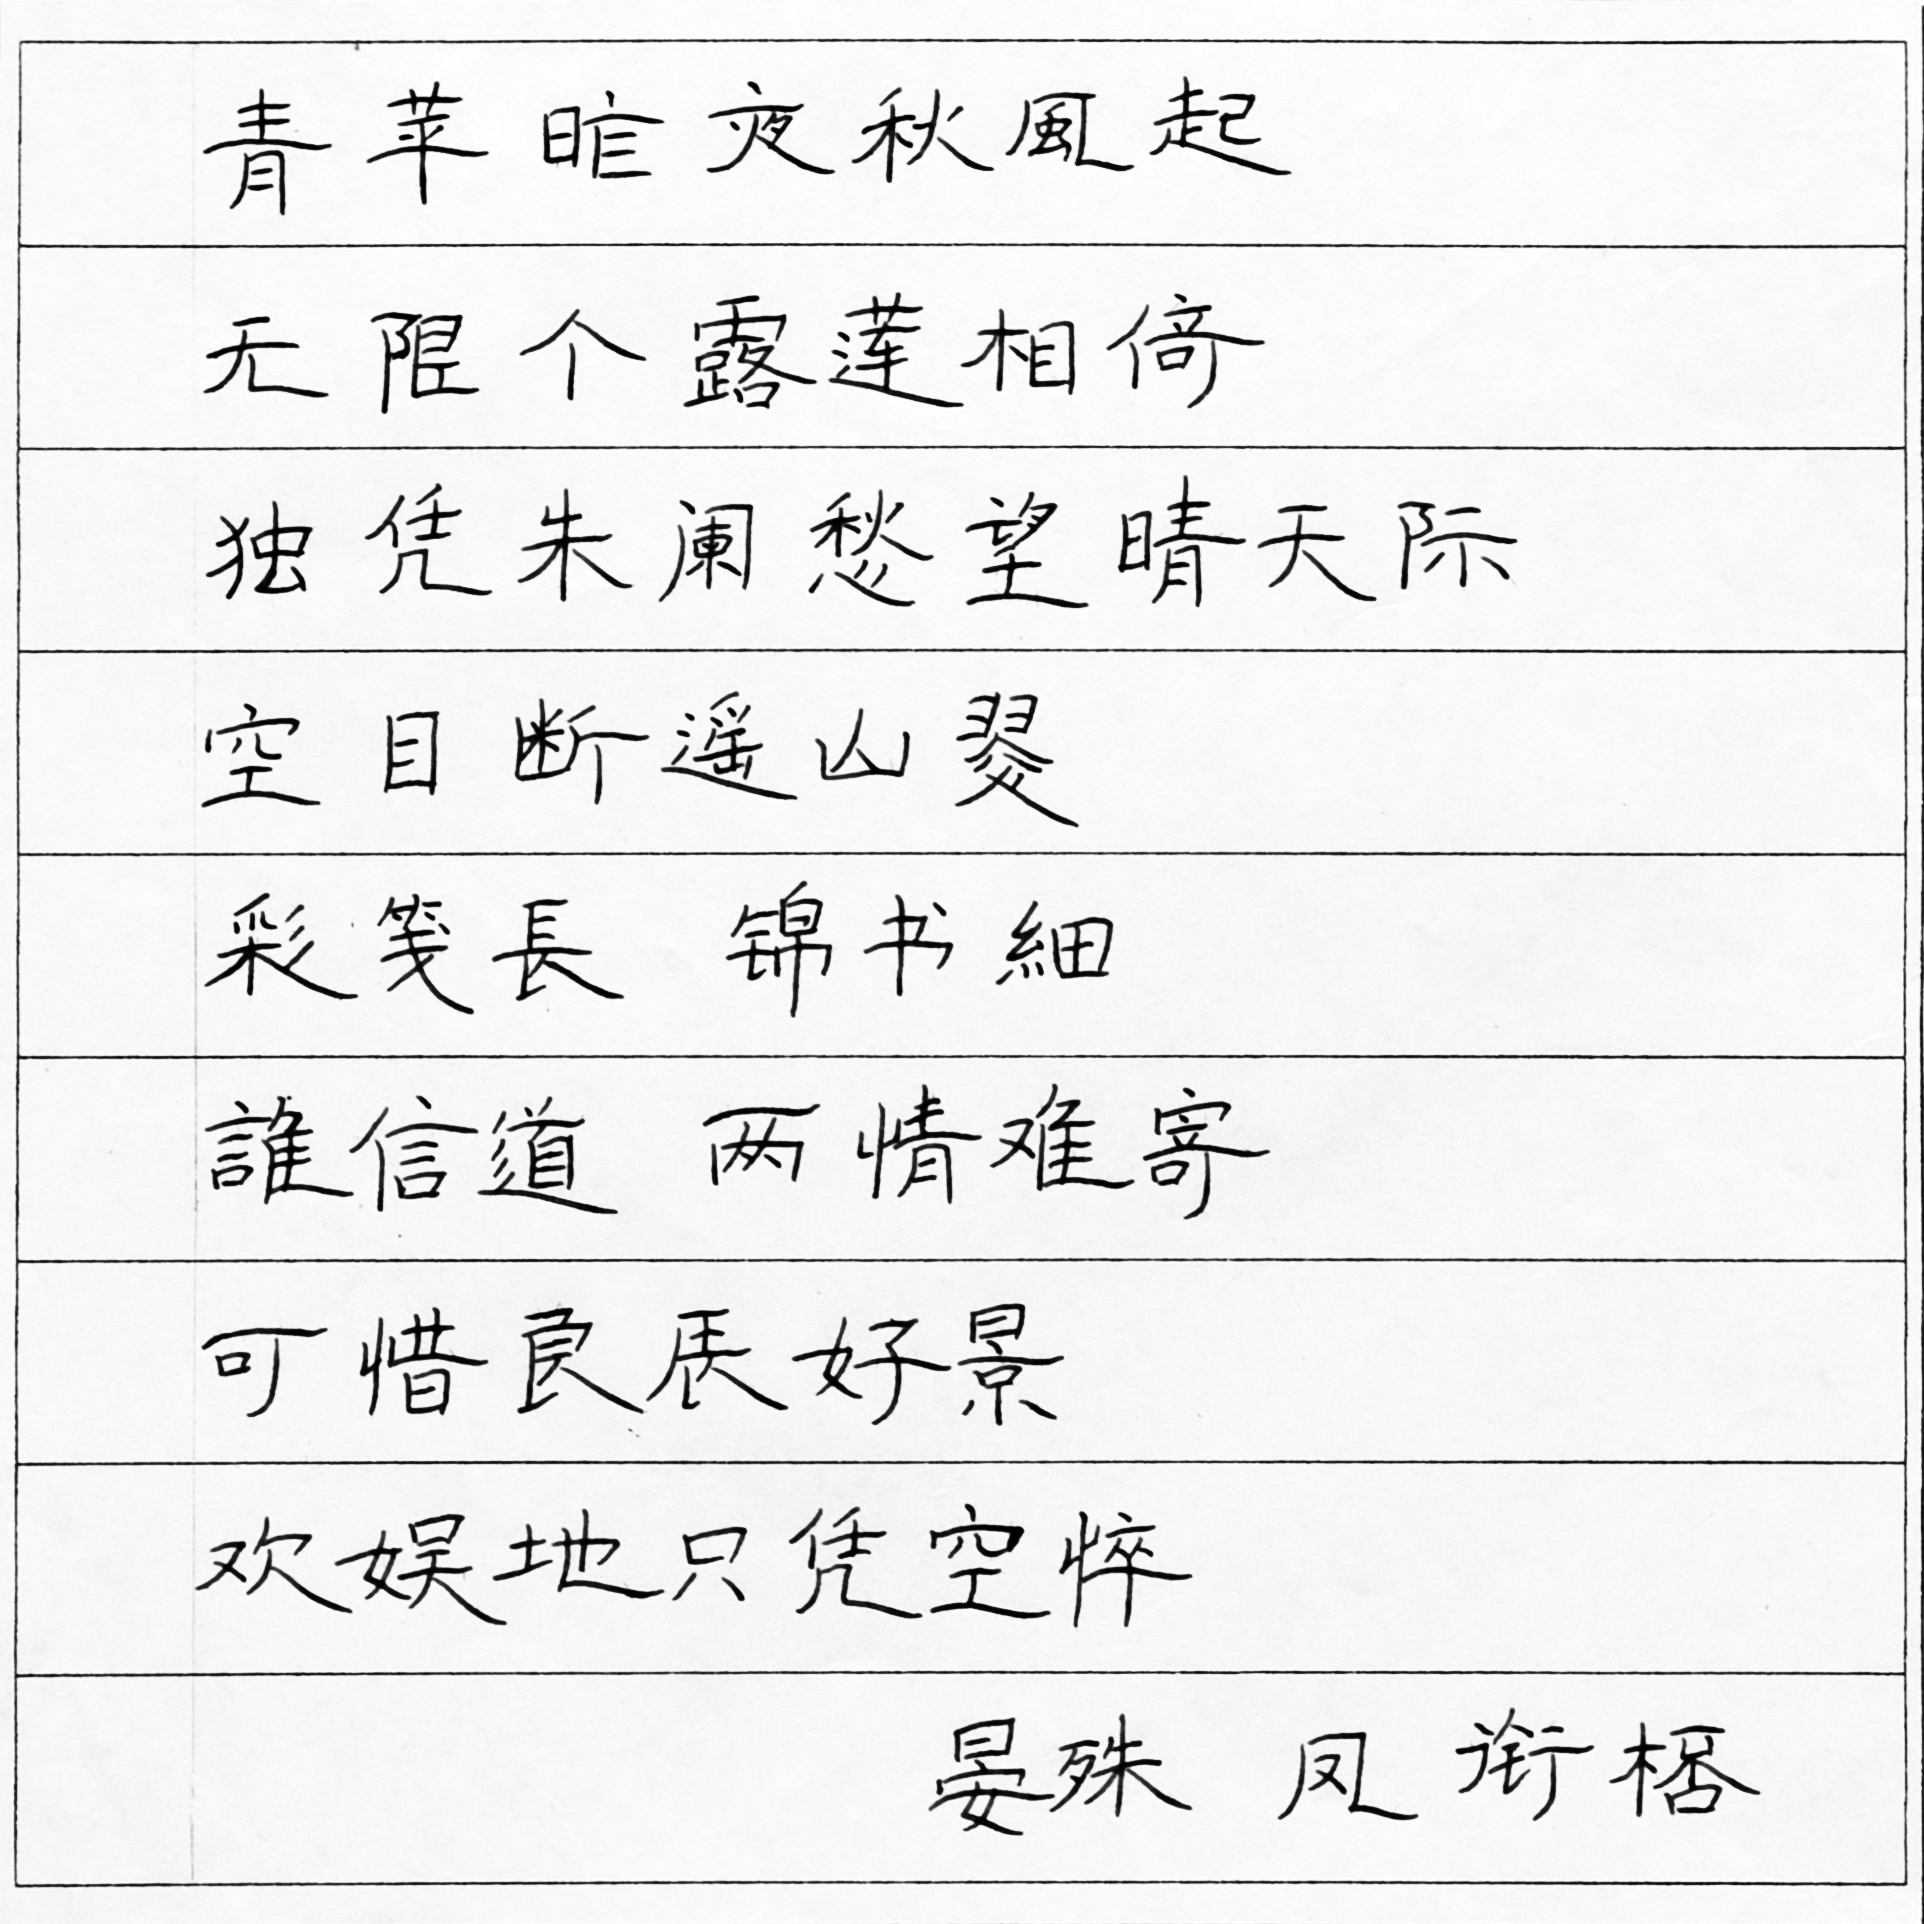 青苹昨夜秋風起
无限个露莲相倚
独凭朱阑愁望晴天际
空目断遥山翠
彩笺長 锦书細
誰信道 两情难寄
可惜良辰好景
欢娱地只凭空悴
晏殊 凤衔桮